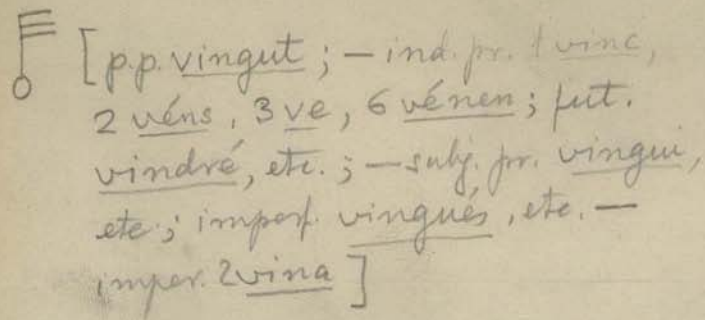 [p.p. vingut ; — ind. pr. 1 vinc,
2 véns, 3 ve, 6 vénen ; fut.
vindré, etc. ; — subj. pr. vingui,
etc ; imperf. vingués, etc. —
imper. 2 vina ]